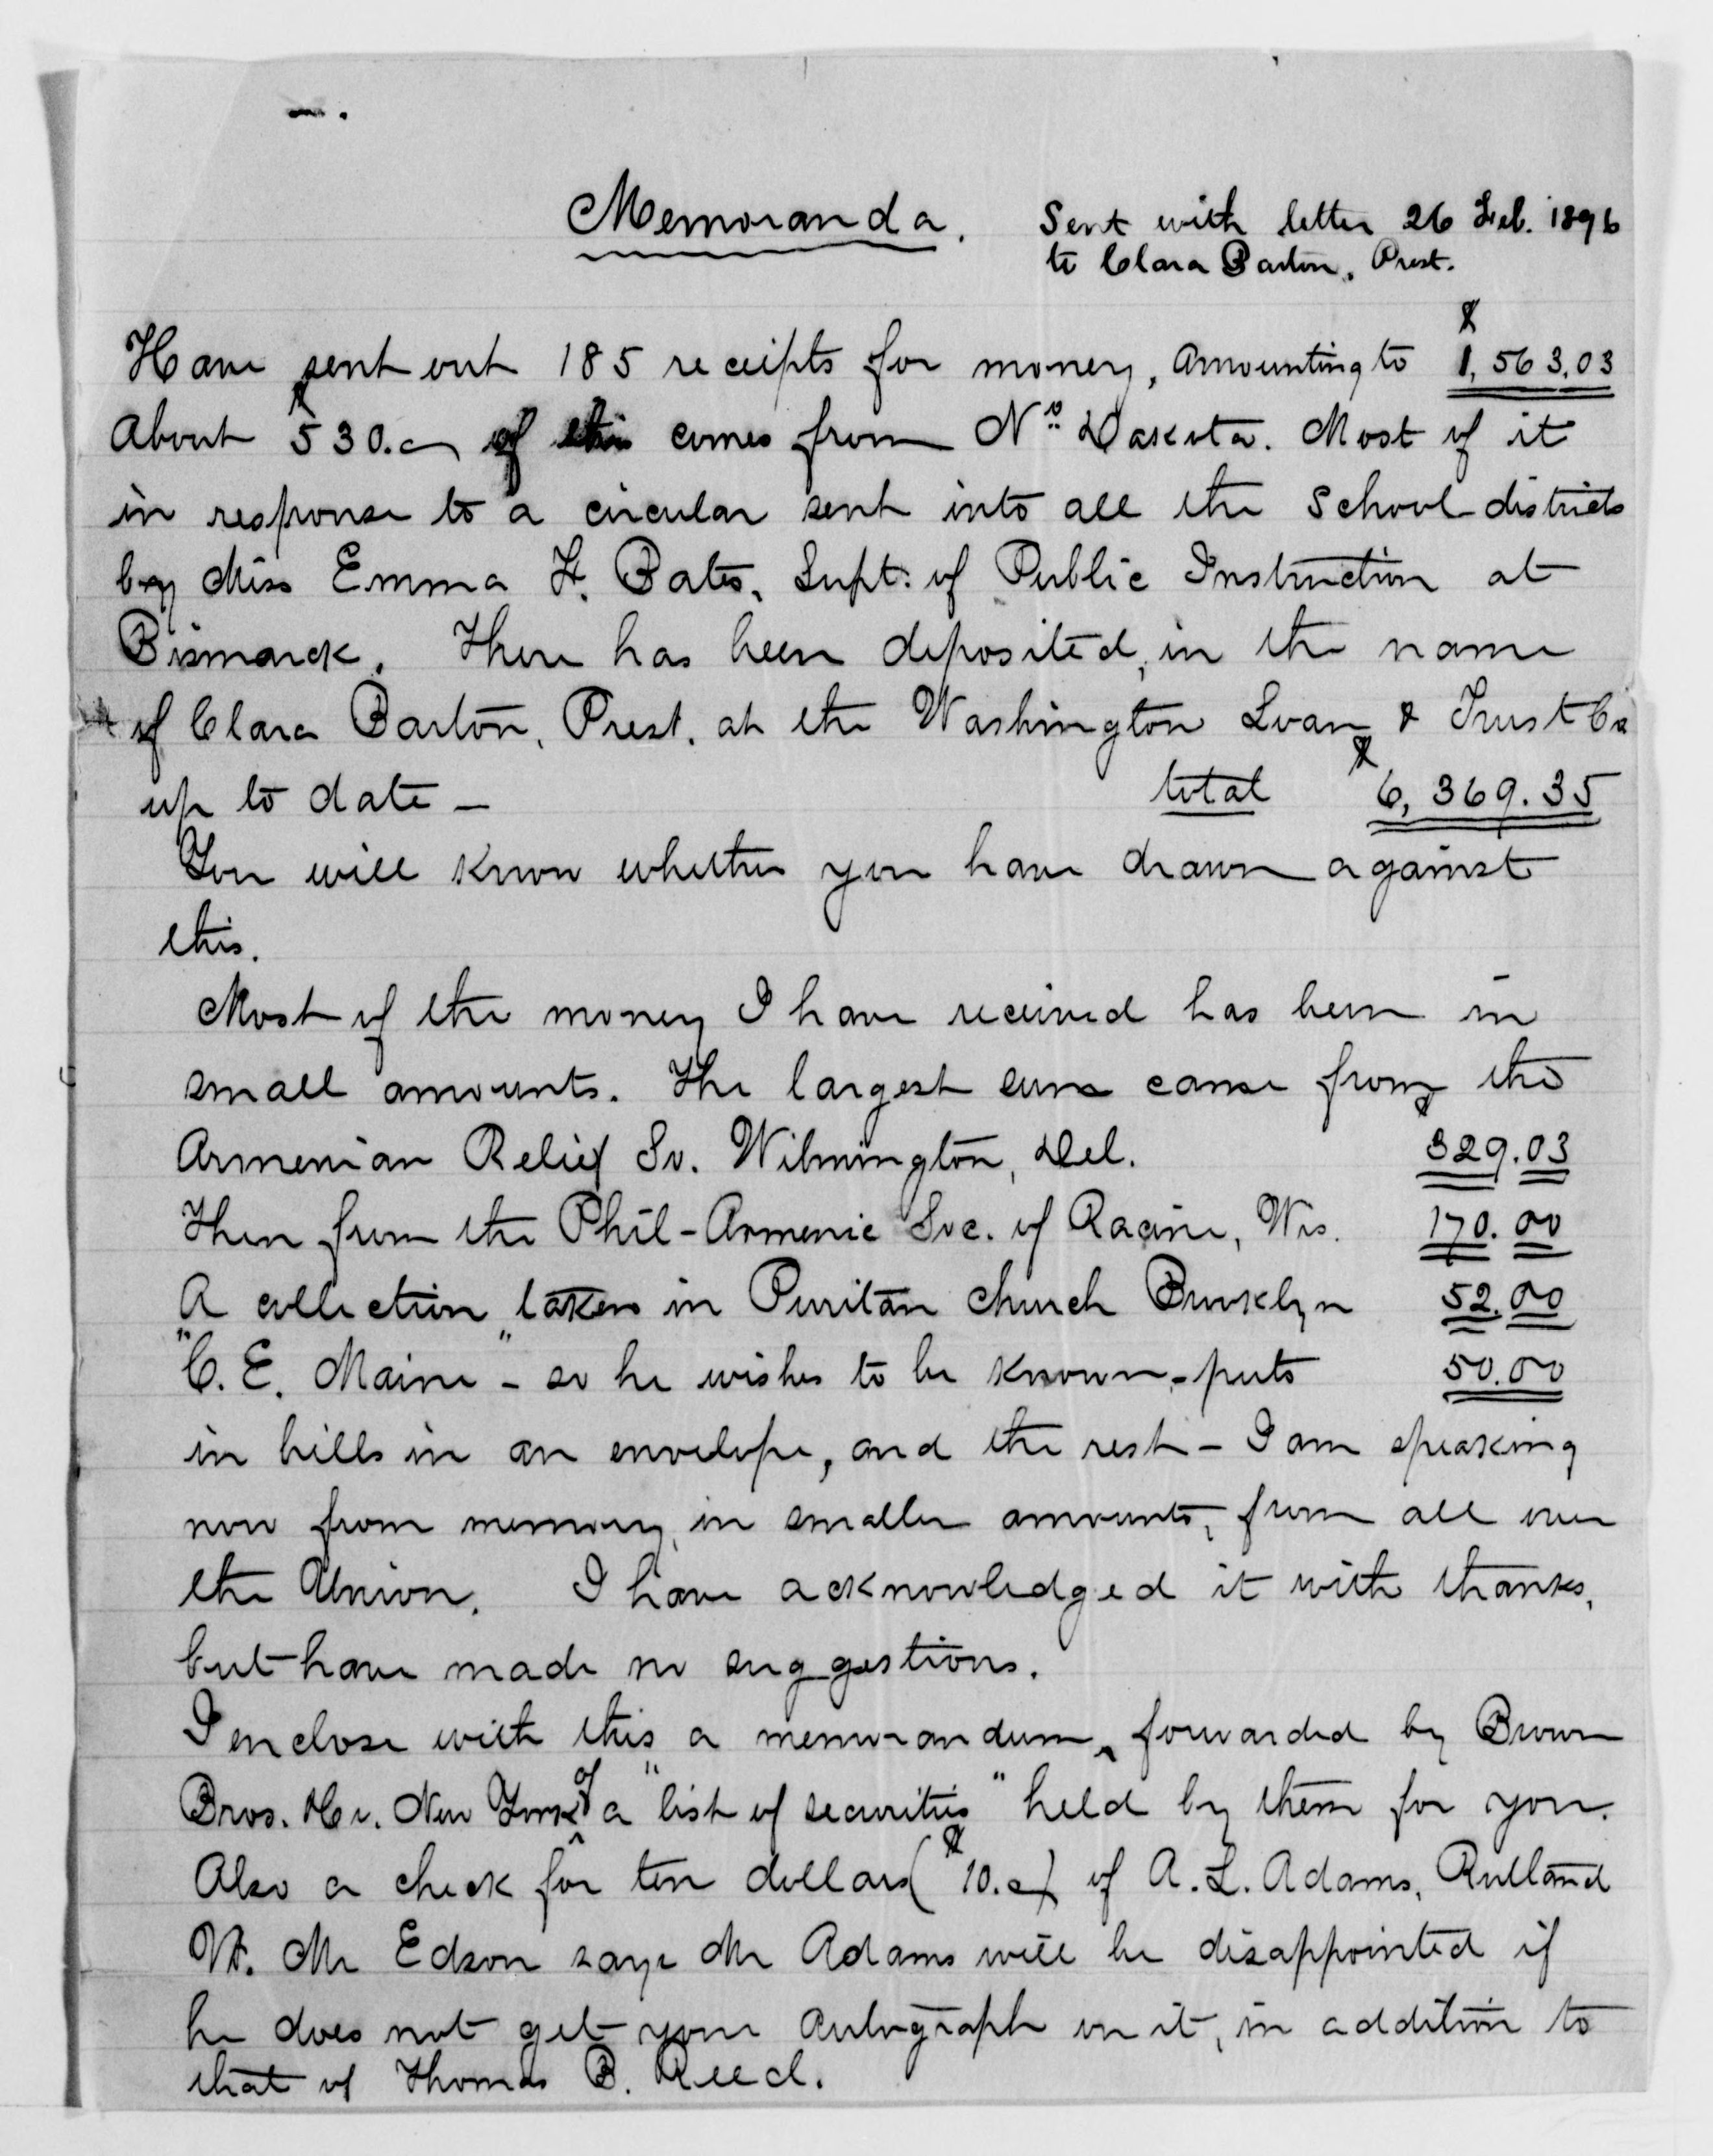 Memoranda. Sent with letter 26 Feb. 1896
to Clara Barton, Prest.
Have sent out 185 receipts for money, amounting to $1,563.03
About $530.00 of this comes from No. Dakota. Most of it
in response to a circular sent into all the School districts
by Miss Emma F. Bates, Supt: of Public Instruction at
Bismarck. There has been deposited, in the name
of Clara Barton, Prest. at the Washington Loan & Trust Co
up to date — total $6,369.35
You will know whether you have drawn against
this.
Most of the money I have received has been in
small amounts. The largest sums came from the
Armenian Relief So. Wilmington, Del. $329.03
Then from the Phil-Armenic Soc. of Racine, Wis. 170.00
A collection taken in Puritan Church Brooklyn 52.00
"C. E. Maine" - so he wishes to be known - puts 50.00
in bills in an envelope, and the rest - I am speaking
now from memory, in smaller amounts, from all over
the Union. I have acknowledged it with thanks,
but have made no suggestions.
I enclose with this a memorandum, forwarded by Brown
Bros. & Co. New York of a "list of securities" held by them for you.
Also a check for ten dollars ($10.00) of A. L. Adams, Rutland
Vt. Mr Edson says Mr Adams will be disappointed if
he does not get your autograph on it, in addition to
that of Thomas B. Reed.